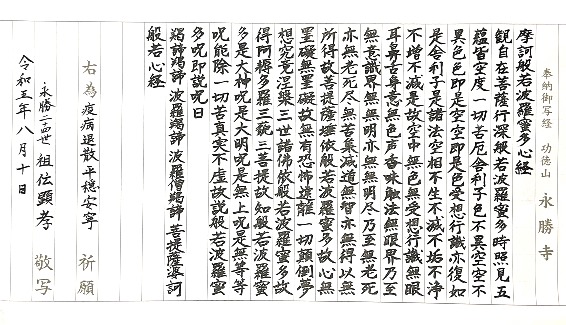 奉納御写経 功徳山 永勝寺
摩訶般若波羅蜜多心経
観自在菩薩行深般若波羅蜜多時照見五
蘊皆空度一切苦厄舎利子色不異空空不
異色色即是空空即是色受想行識亦復如
是舎利子是諸法空相不生不滅不垢不浄
不増不減是故空中無色無受想行識無眼
耳鼻舌身意無色声香味触法無眼界乃至
無意識界無無明亦無無明尽乃至無老死
亦無老死尽無苦集滅道無智亦無得以無
所得故菩提薩埵依般若波羅蜜多故心無
罣礙無罣礙故無有恐怖遠離一切顛倒夢
想究竟涅槃三世諸佛依般若波羅蜜多故
得阿耨多羅三藐三菩提故知般若波羅蜜
多是大神呪是大明呪是無上呪是無等等
呪能除一切苦真実不虚故説般若波羅蜜
多呪即説呪曰
羯諦羯諦 波羅羯諦 波羅僧羯諦 菩提薩婆訶
般若心経
右為 疫病退散 平穏安寧 祈願
永勝 祖伝顕孝 敬写
令和五年八月十日